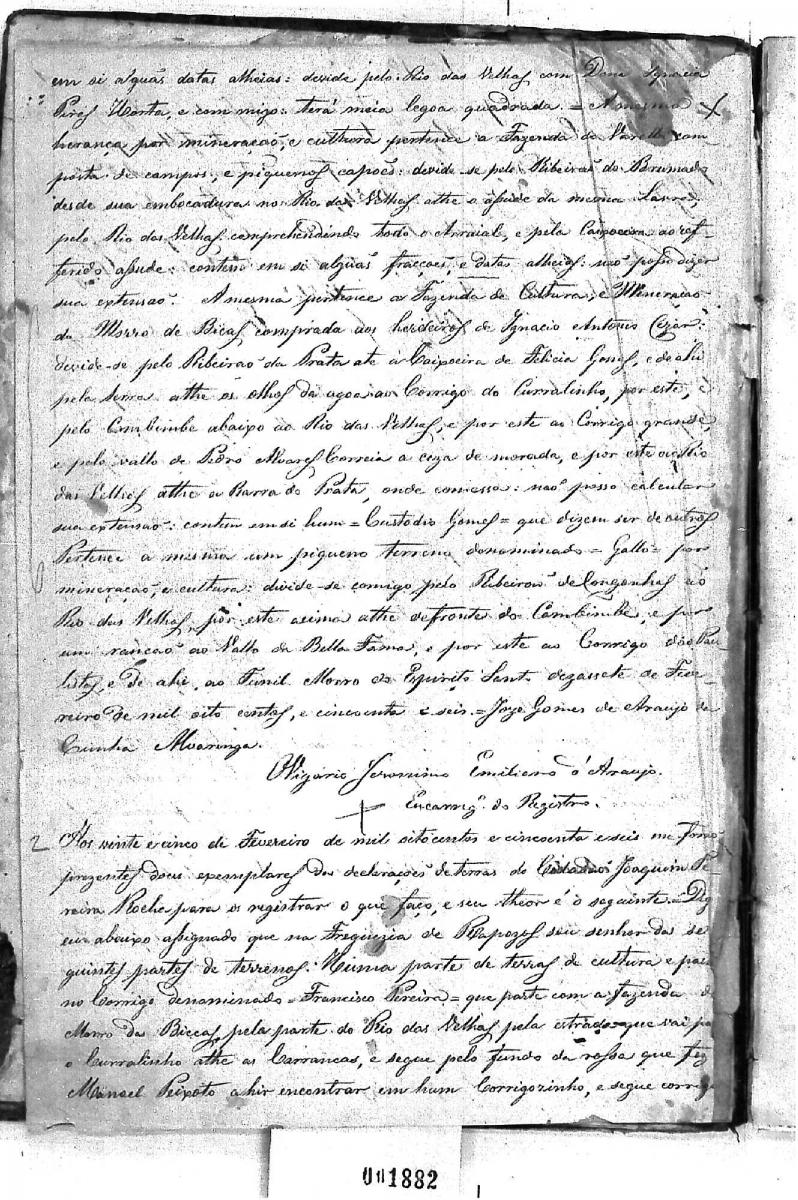 em si alguãs datas alheias: devide pelo Rio das Velhas com Dona Ignacia
Pires Horta, e com migo: terá meia legoa quadrada. = A mesma X
herança por mineração, e cultura pertence a Fazenda do com
porta de campos, e piquenos capoẽs: devide-se pelo Ribeiraõ do Brumado
desde sua embocadura no Rio das Velhas athe o assude da mesma Lavra,
pelo Rio das Velhas comprehendindo todo o Arraial, e pela Caipoeira ao ref-
ferido assude: contem em si alguãs fracçoẽs, e datas alheias: naõ posso dizer
sua extensaõ. A mesma pertence a Fazenda de Cultura, e Mineraçaõ
do Morro de Bicas comprada aos herdeiros de Ignacio Antonio Cezar:
devide-se pelo Ribeiraõ da Prata ate a Caipoeira de Felicia Gomes, e de ahi
pela serra athe os olhos da agoa ao Corrigo do Curralinho, por este, e
pelo Cambimbe abaixo ao Rio das Velhas, e por este ao Corrigo grande,
e pelo vallo de Pedro Alvares Correia a caza de morada, e por este o Rio
das Velhas athe a Barra do Prata, onde comessa: naõ posso calcular
sua extensaõ: contem em si hum = Custodio Gomes = que dizem ser de outros
Pertence a mesma um piqueno terreno denominado = Gallo = por
mineração e cultura: divide-se comigo pelo Ribeiraõ de Congonhas ao
Rio das Velhas, por este acima athe defronte do Cambimbe, e por
um rancaõ ao Vallo da Bella Fama, e por este ao Corrigo dos Pau
listas, e de ahi ao Funil Morro do Espirito Santo dezassete de Feve-
reiro de mil oito centos, e cincoenta e seis. = Joze Gomes de Araujo da
Cunha Alvarenga.
Vigario Jeronimo Emiliano d'Araujo.
Encarreg. do Registro.
2 Aos vinte e cinco de Fevereiro de mil oitocentos e cincoenta e seis me foraõ
prezentes dous exemplares das declaraçoẽs de terras do Cidadaõ Joaquim Fe
reira Rocha para os registrar o que faço, e seu theor é o seguinte. = Dig
eu abaixo assignado que na Freguezia de Rapozos sou senhor das se
guintes partes de terrenos. Huma parte de terras de cultura e
no Corrigo denominado = Francisco Pereira = que parte com a fazenda d
Morro das Biccas, pela parte do Rio das Velhas pela estrada que vai pa
o Curralinho athe as Carrancas, e segue pelo fundo da rossa que fez
Manoel Peixoto a hir encontrar em hum Corrigozinho, e segue corrigo
001882